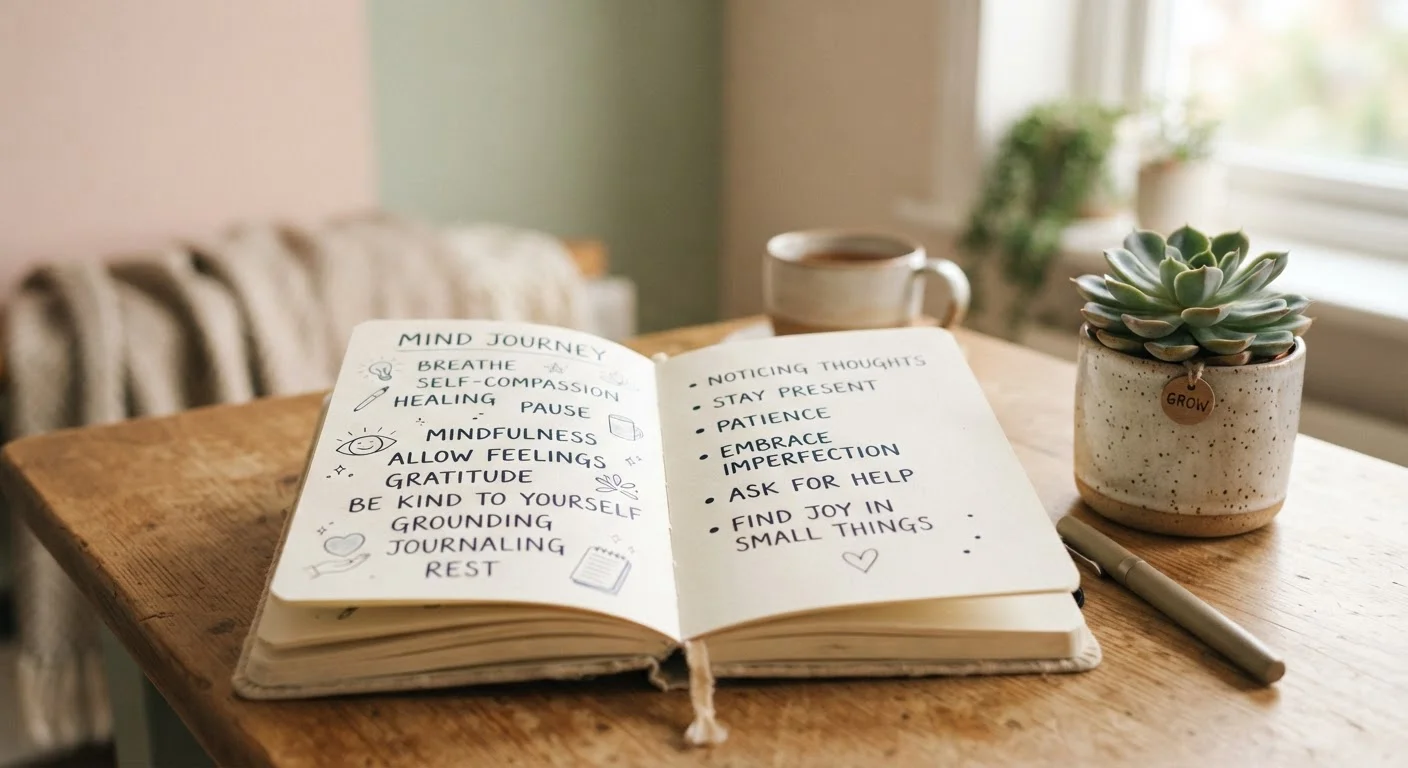 MIND JOURNEY
BREATHE
SELF-COMPASSION
HEALING PAUSE
MINDFULNESS
ALLOW FEELINGS
GRATITUDE
BE KIND TO YOURSELF
GROUNDING
JOURNALING
REST
• NOTICING THOUGHTS
• STAY PRESENT
• PATIENCE
• EMBRACE
IMPERFECTION
• ASK FOR HELP
• FIND JOY IN
SMALL THINGS
GROW